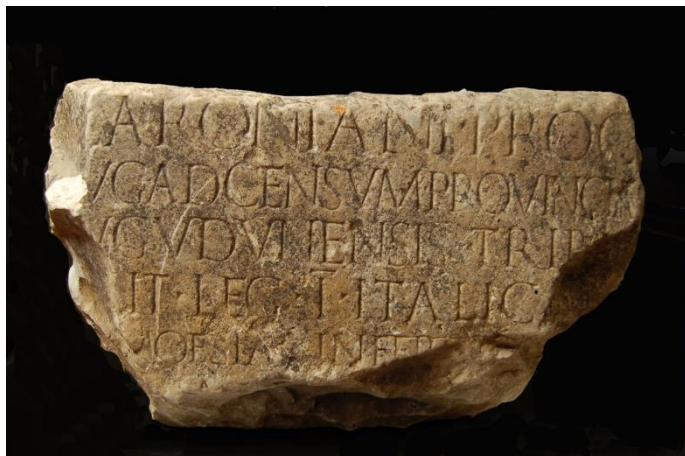 ARONIANI·PROC
VGADCENSVMPROVINCI
VGVDVNENSIS·TRIB
IT·LEG·Ī·ITALIC
MOESIAE INFER